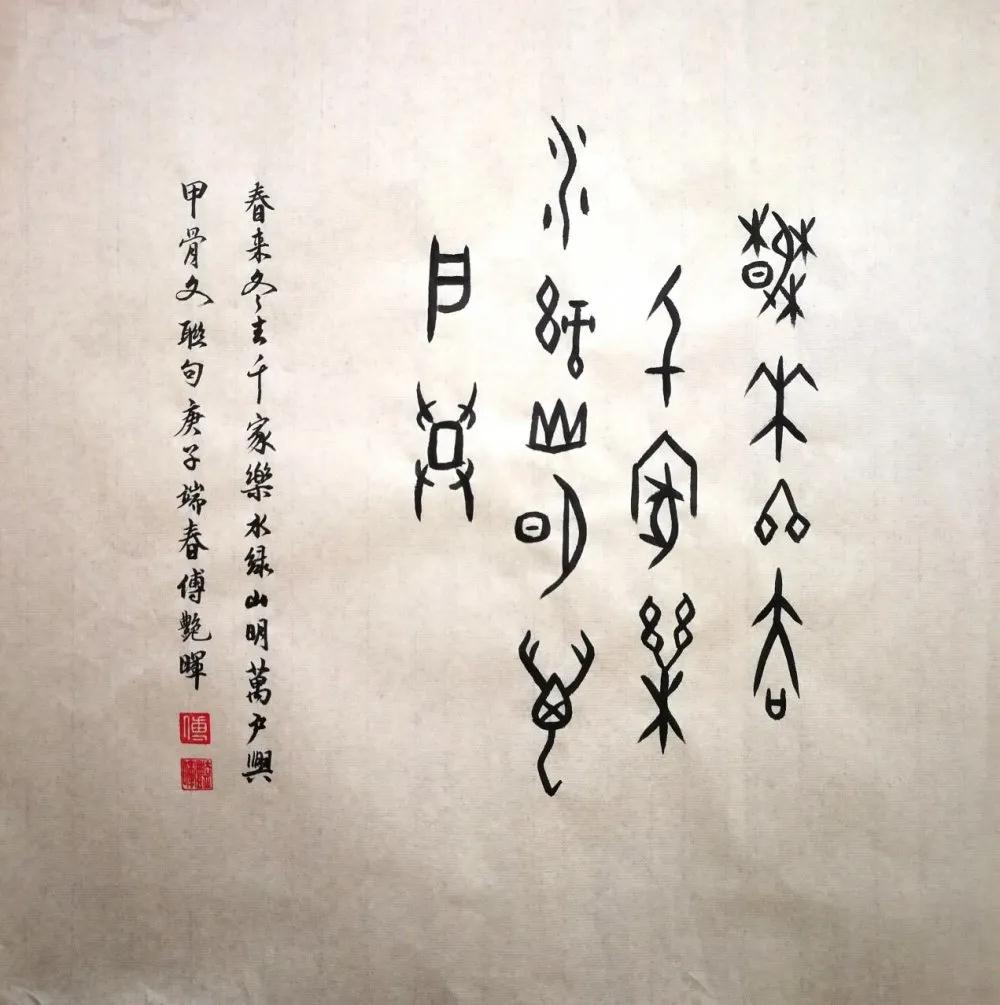 春来冬去
千家樂
水緑山明萬
户興
春来冬去千家樂水緑山明萬户興
甲骨文聯句庚子端春傅艷暉
傅